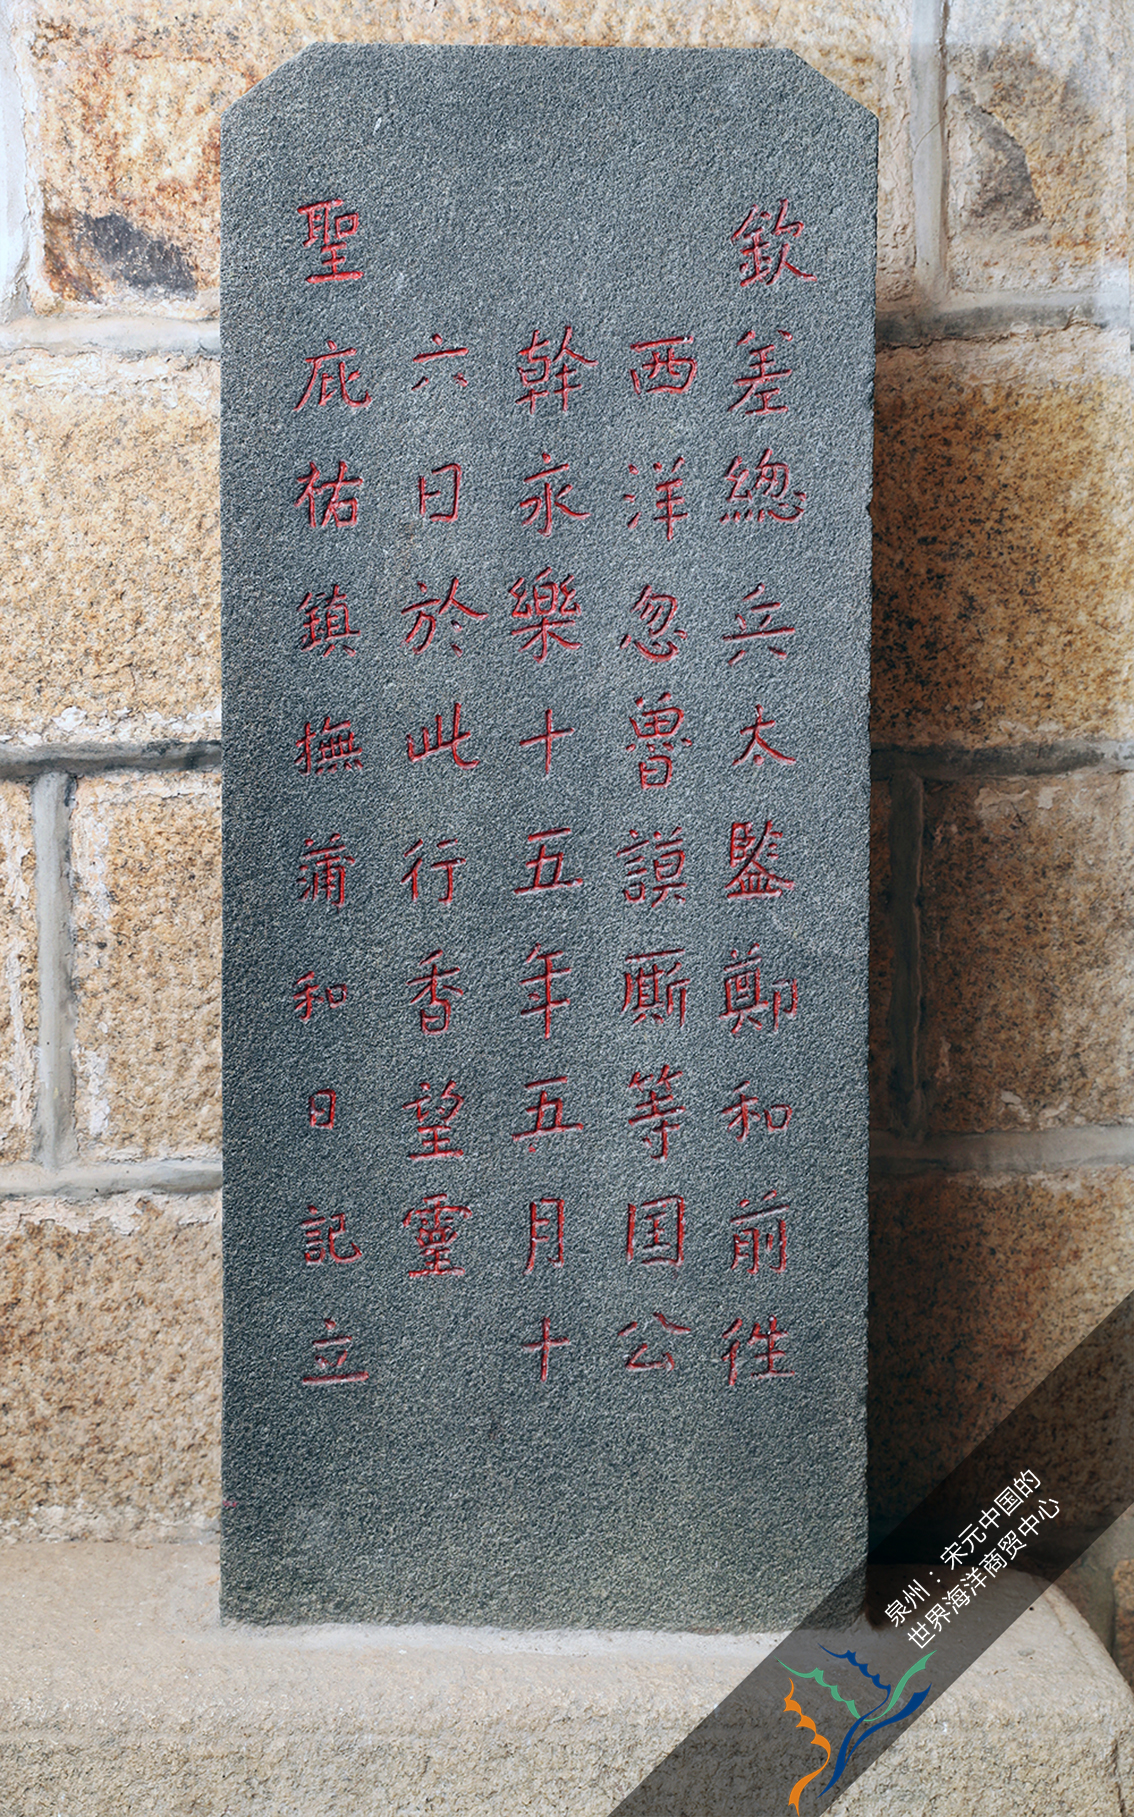 欽差總兵太監鄭和前往
西洋忽魯謨厮等国公
幹永樂十五年五月十
六日於此行香望靈
聖庇祐鎮撫蒲和日記立
泉州：宋元中国的
世界海洋商贸中心